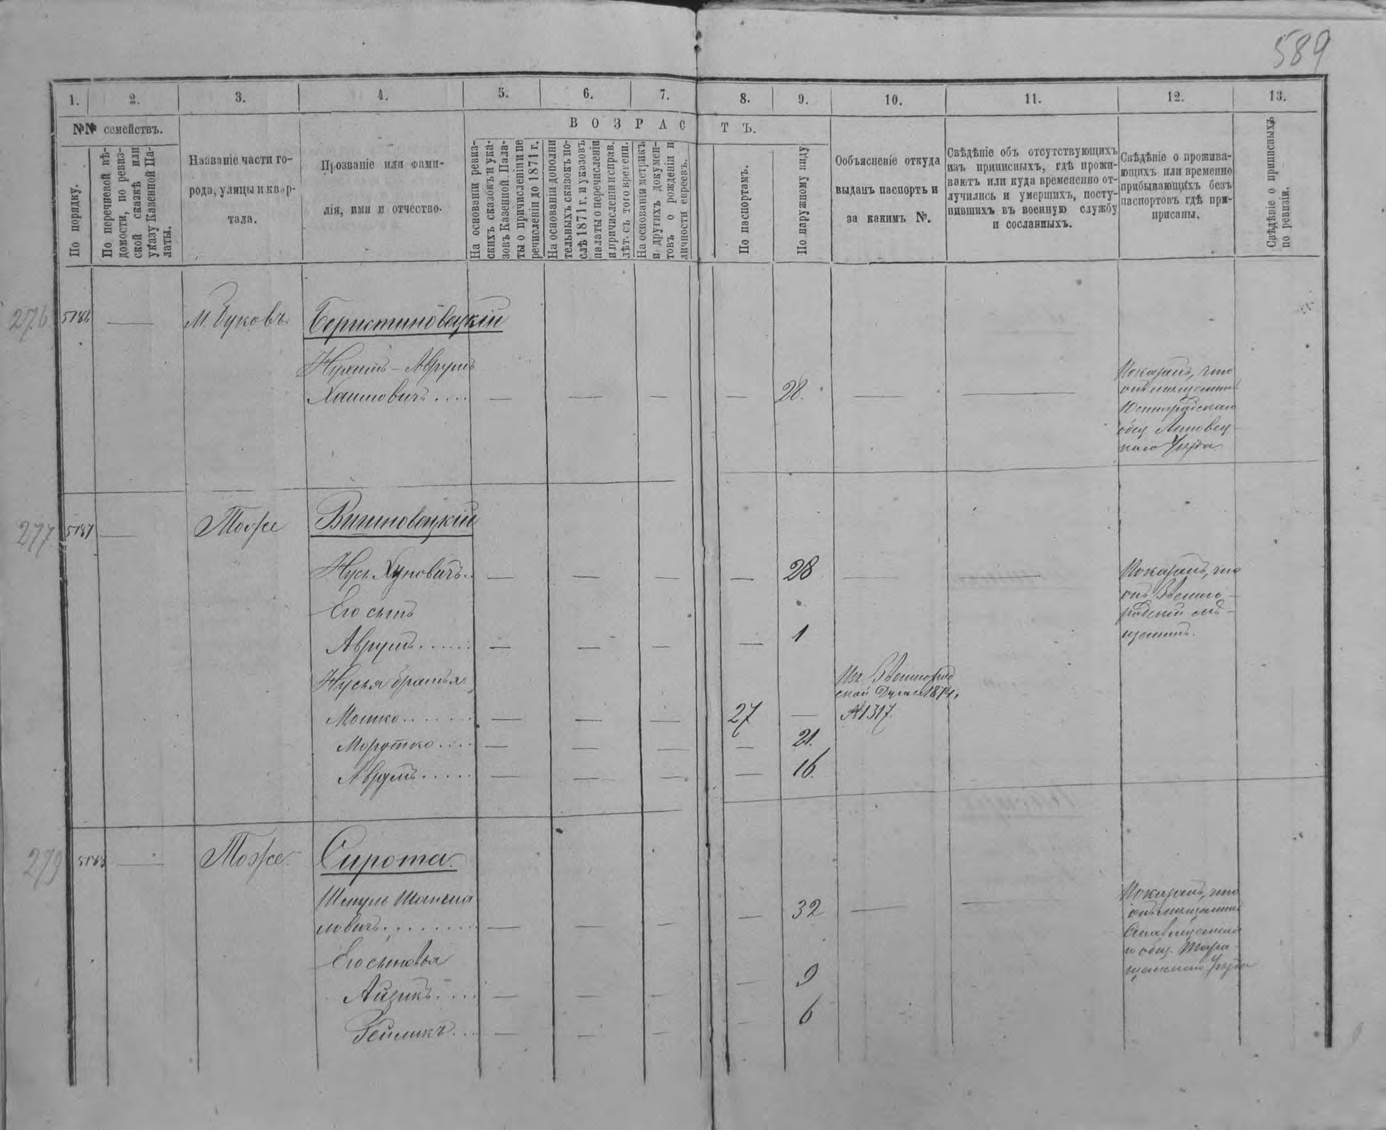 589
1. 2. 3. 4. 5. 6. 7. 8. 9. 10. 11. 12. 13.
№№ семействъ.
По порядку.
По перечневой вѣ-
домости, по ревиз-
ской сказкѣ или
указу Казенной Па-
латы.
Названіе части го-
рода, улицы и квар-
тала.
Прозваніе или фами-
лія, имя и отчество.
ВОЗРАСТЪ.
На основаніи ревиз-
скихъ сказокъ и ука-
зовъ Казенной Пала-
ты о причисленіи пе
речисленіи до 1871 г.
На основаніи дополни
тельныхъ сказокъ по-
слѣ 1871 г. и указовъ
палаты о перечисленіи
и причисленіи и справ.
лѣт. съ того времени.
На основаніи метрикъ
и другихъ докумен-
товъ о рожденіи и
личности евреевъ.
По паспортамъ.
По наружному виду
Объясненіе откуда
выданъ паспортъ и
за какимъ №.
Свѣдѣніе объ отсутствующихъ
изъ приписныхъ, гдѣ прожи-
ваютъ или куда временно от-
лучились и умершихъ, посту-
пившихъ въ военную службу
и сосланныхъ.
Свѣдѣніе о прожива-
ющихъ или временно
прибывающихъ безъ
паспортовъ гдѣ при-
приписаны.
Свѣдѣніе о приписныхъ
по ревизіи.
276 5186 — М. Буковъ
Нухимъ – Аврумъ
Хаимовичъ .... — — — — 28 — —
Показалъ, что
онъ мещанинъ
277 5187 — Тоже Вишновецкій
Нусь Хуновичъ.. — — — — 28 —
Показалъ, что
онъ Звениго-
родскій мѣ-
щанинъ.
Его сынъ
Аврумъ...... — — — — 1
Нуся братья
Мошко....... — — — 27 —
Из Звенигород
ской Думы 1874,
№ 1317
Мордтко.... — — — — 21
Аврумъ..... — — — — 16
279 5188 — Тоже Сирота
Шмуль
ловичъ........ — — — — 32 — —
Показалъ, что
онъ мещанинъ
Его сыновья
Айзикъ.... — — — — 9
Гейликъ... — — — — 6